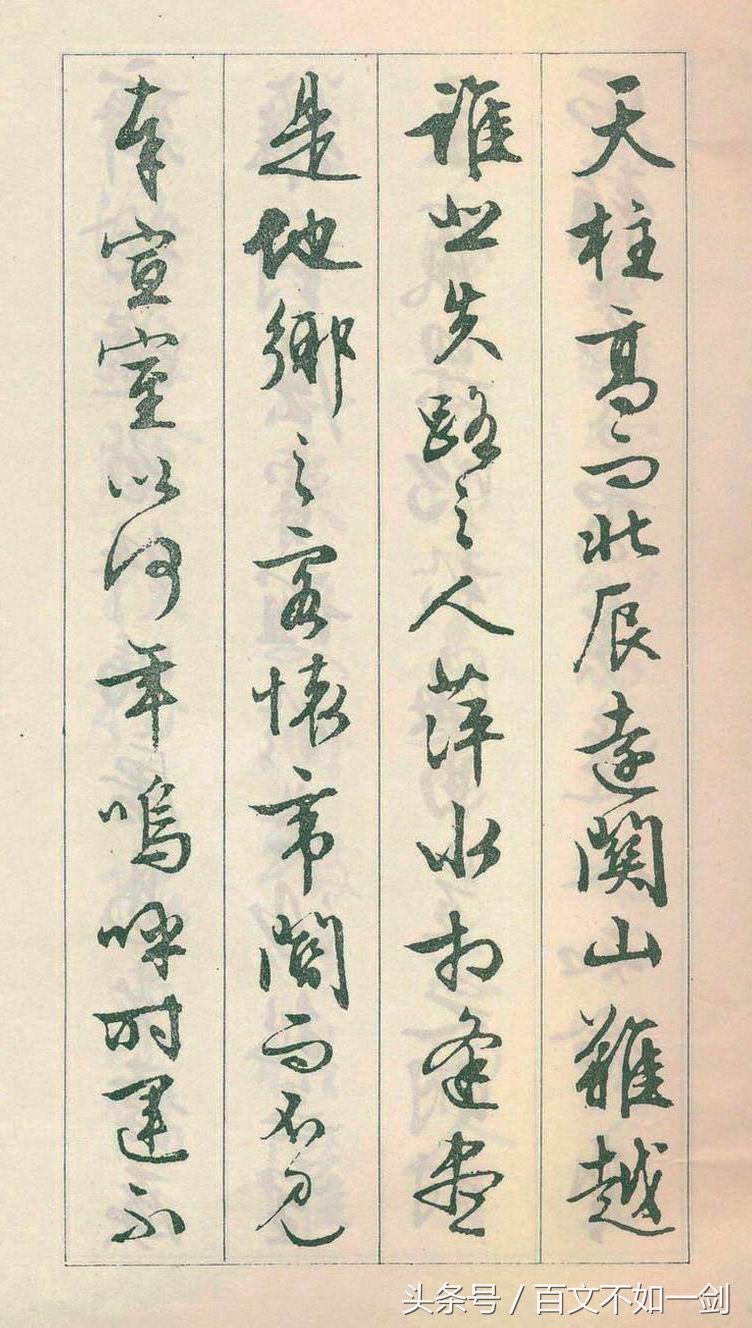 天柱高而北辰遠關山難越
誰悲失路之人萍水相逢盡
是他鄉之客懷帝閽而不見
奉宣室以何年嗚呼時運不
头条号 / 百文不如一剑